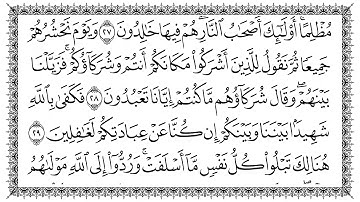 مُظْلِمًا ۚ أُو۟لَـٰٓئِكَ أَصْحَـٰبُ ٱلنَّارِ ۖ هُمْ فِيهَا خَـٰلِدُونَ ٢٧ وَيَوْمَ نَحْشُرُهُمْ
جَمِيعًا ثُمَّ نَقُولُ لِلَّذِينَ أَشْرَكُوا۟ مَكَانَكُمْ أَنتُمْ وَشُرَكَآؤُكُمْ ۚ فَزَيَّلْنَا
بَيْنَهُمْ ۖ وَقَالَ شُرَكَآؤُهُم مَّا كُنتُمْ إِيَّانَا تَعْبُدُونَ ٢٨ فَكَفَىٰ بِٱللَّهِ
شَهِيدًۢا بَيْنَنَا وَبَيْنَكُمْ إِن كُنَّا عَنْ عِبَادَتِكُمْ لَغَـٰفِلِينَ ٢٩
هُنَالِكَ تَبْلُوا۟ كُلُّ نَفْسٍ مَّآ أَسْلَفَتْ ۚ وَرُدُّوٓا۟ إِلَى ٱللَّهِ مَوْلَىٰهُمُ